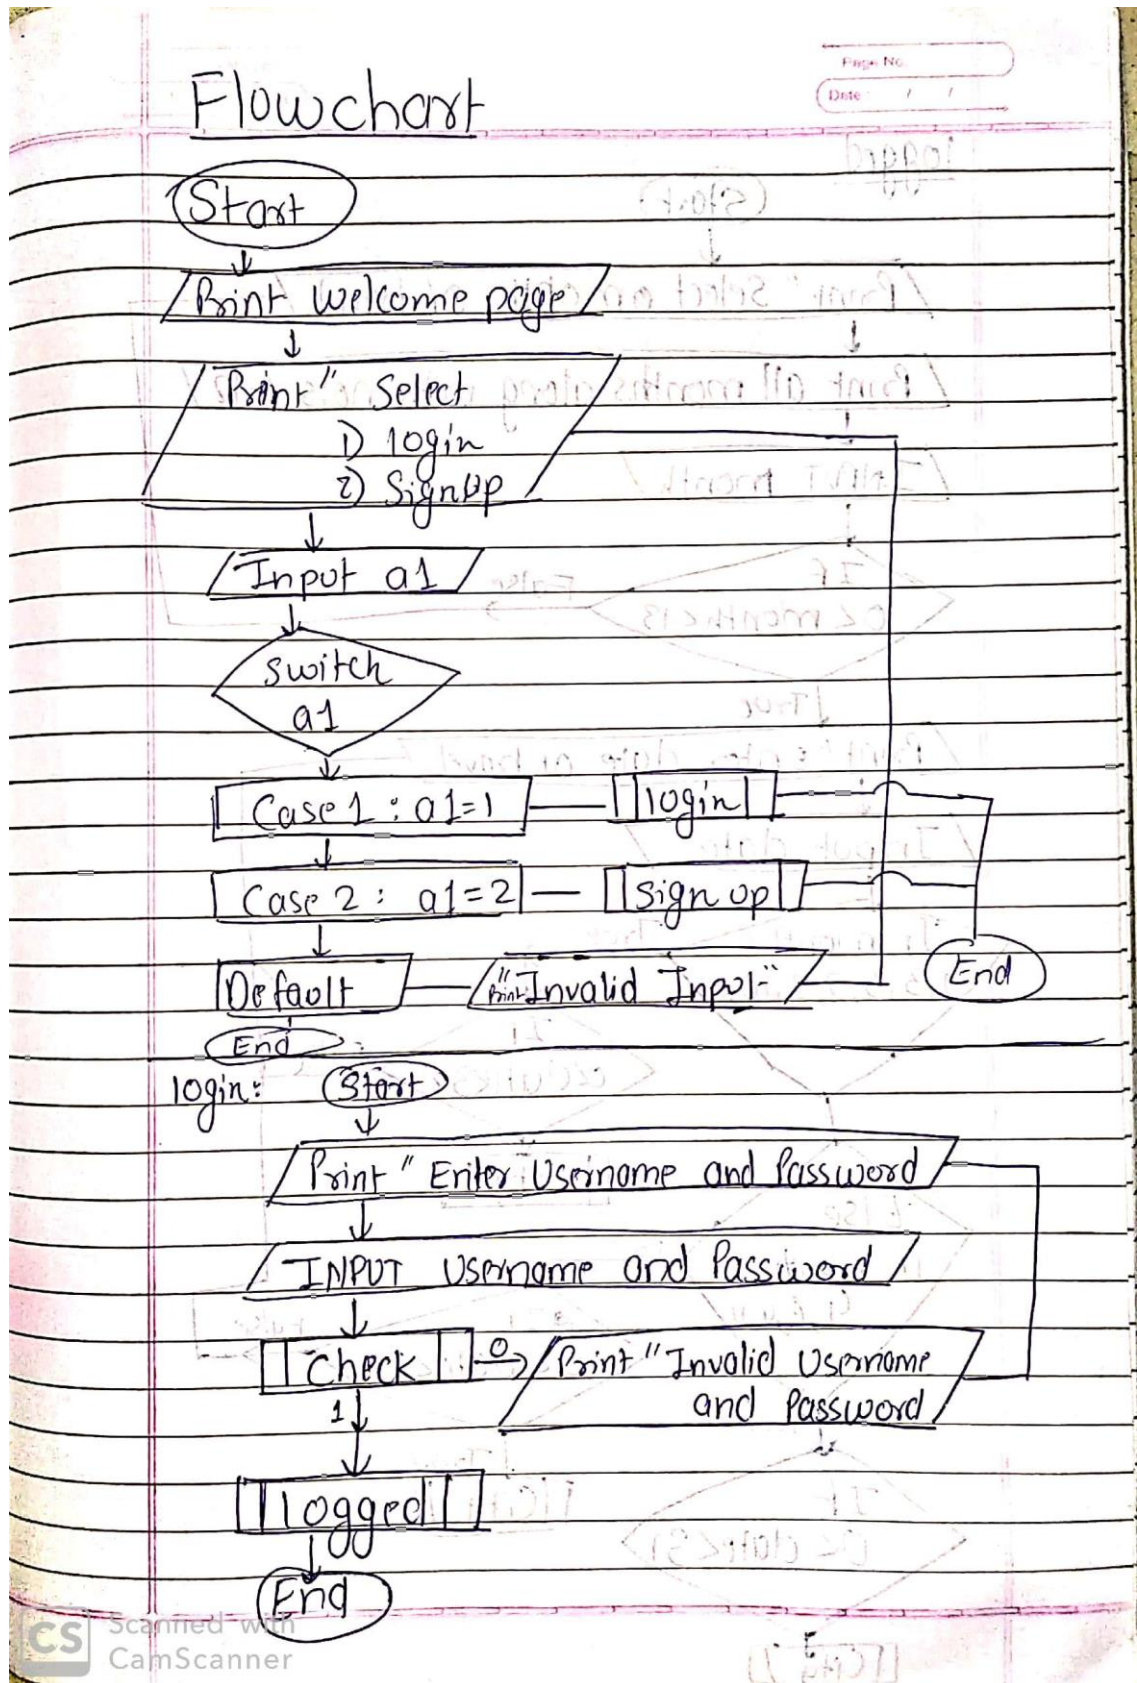 Page No.
Date / /
Flowchart
Start
Print welcome page
Print" Select
1) login
2) SignUp
Input a1
switch
a1
Case 1 : a1=1
login
Case 2 : a1=2
Sign up
Default
Print "Invalid Input"
End
End
login:
Start
Print "Enter Username and Password
INPUT Username and Password
Check
0
Print "Invalid Username
and Password
1
logged
End
CS
Scanned with
CamScanner